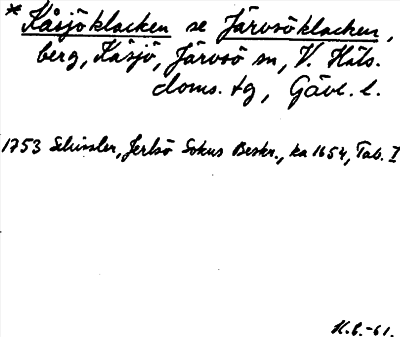 * Kåsjöklacken se Järvsöklacken,
berg, Kåsjö, Järvsö sn, V. Häls.
doms. tg, Gävl. l.
1753 Schissler, Jerlsö Sokns Beskr., ka 1654, Tab. I
H.G.-61.